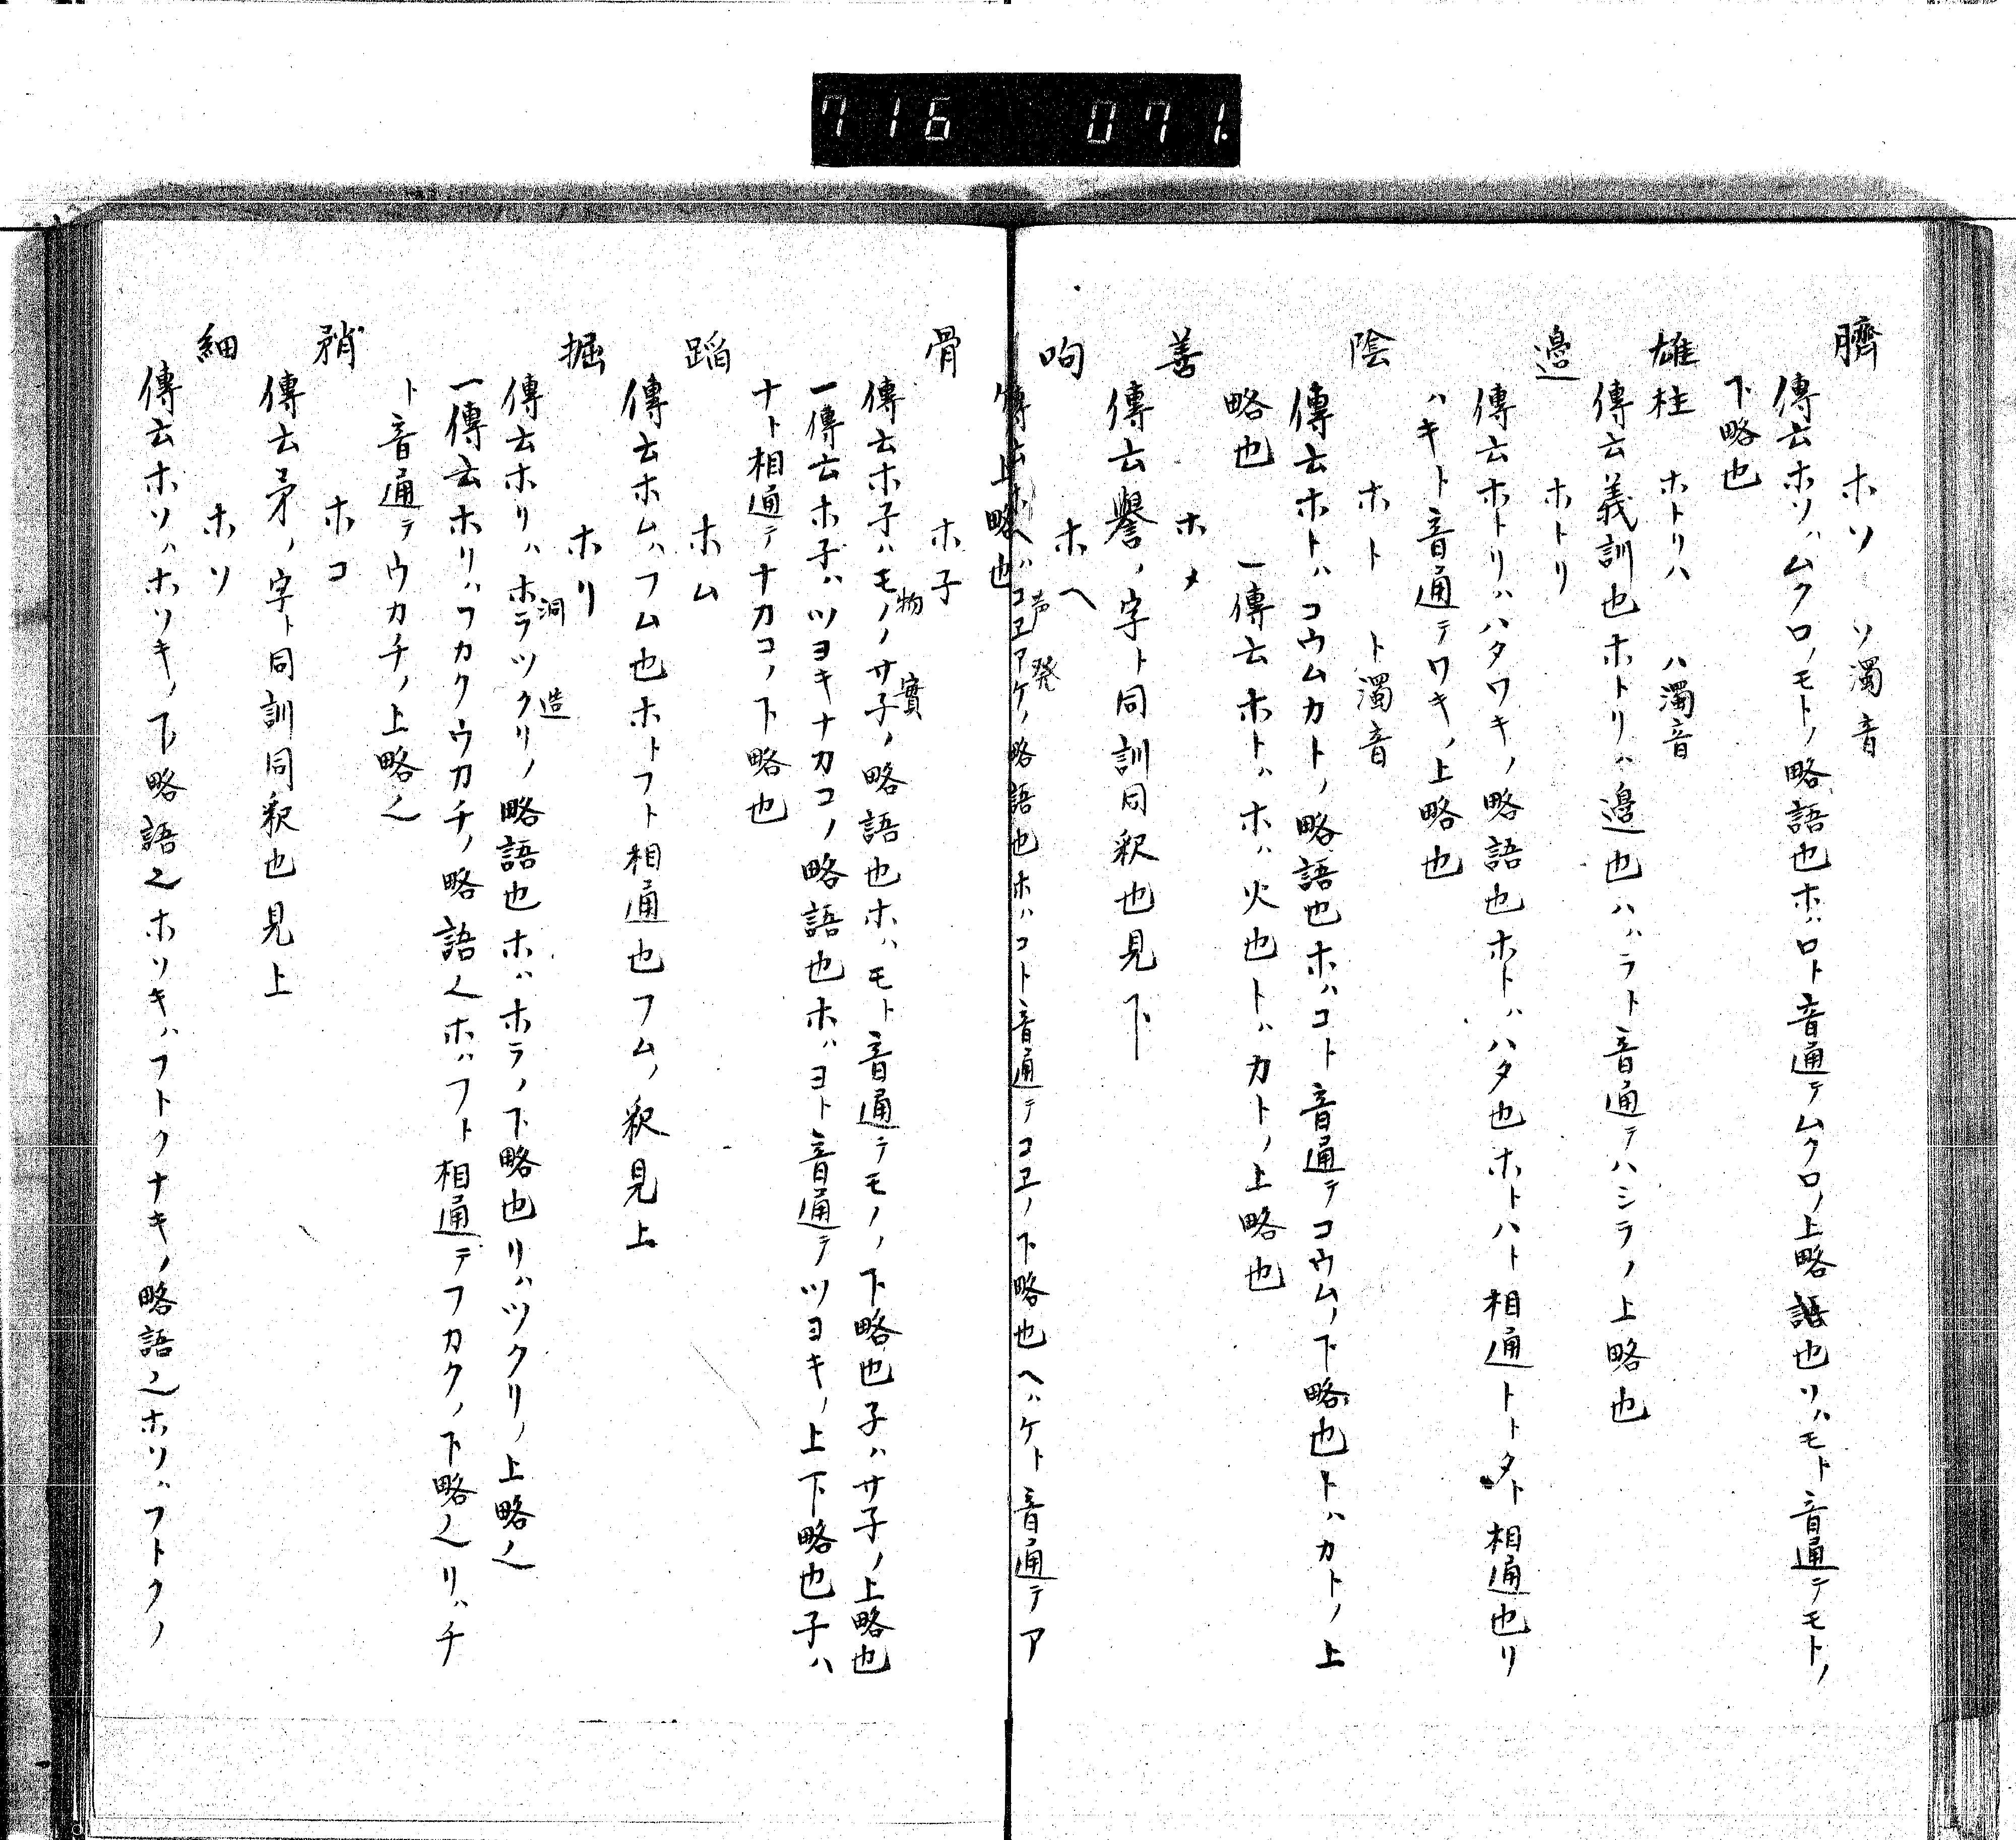 716 071
臍 ホソ ソ濁音
傳云ホソハムクロノモトノ略語也ホハロト音通テムクロノ上略語也ソハモト音通テモトノ
下略也
雄柱 ホトリハ ハ濁音
傳云義訓也ホトリハ邉也ハハラト音通テハシラノ上略也
邉 ホトリ
傳云ホトリハハタワキノ略語也ホトハハタ也ホトハト相通トトタト相通也リ
ハキト音通テワキノ上略也
陰 ホト ト濁音
傳云ホトハコウムカトノ略語也ホハコト音通テコウムノ下略也トハカトノ上
略也 一傳云ホトハホハ火也トハカトノ上略也
善 ホメ
傳云譽ノ字ト同訓同釈也見下
呴 ホヘ
傳云ホヘハコヱアケノ略語也ホハコト音通テコヱノ下略也ヘハケト音通テア
声 発
ケノ上略也
骨 ホ子
傳云ホ子ハモノノサ子ノ略語也ホハモト音通テモノノ下略也子ハサ子ノ上略也
物 實
一傳云ホ子ハツヨキナカコノ略語也ホハヨト音通テツヨキノ上下略也子ハ
ナト相通テナカコノ下略也
蹈 ホム
傳云ホムハフム也ホトフト相通也フムノ釈見上
掘 ホリ
傳云ホリハホラツクリノ略語也ホハホラノ下略也リハツクリノ上略〆
洞 造
一傳云ホリハフカクウカチノ略語〆ホハフト相通テフカクノ下略〆リハチ
ト音通テウカチノ上略〆
矟 ホコ
傳云矛ノ字ト同訓同釈也見上
細 ホソ
傳云ホソハホソキノ下略語〆ホソキハフトクナキノ略語〆ホソハフトクノ